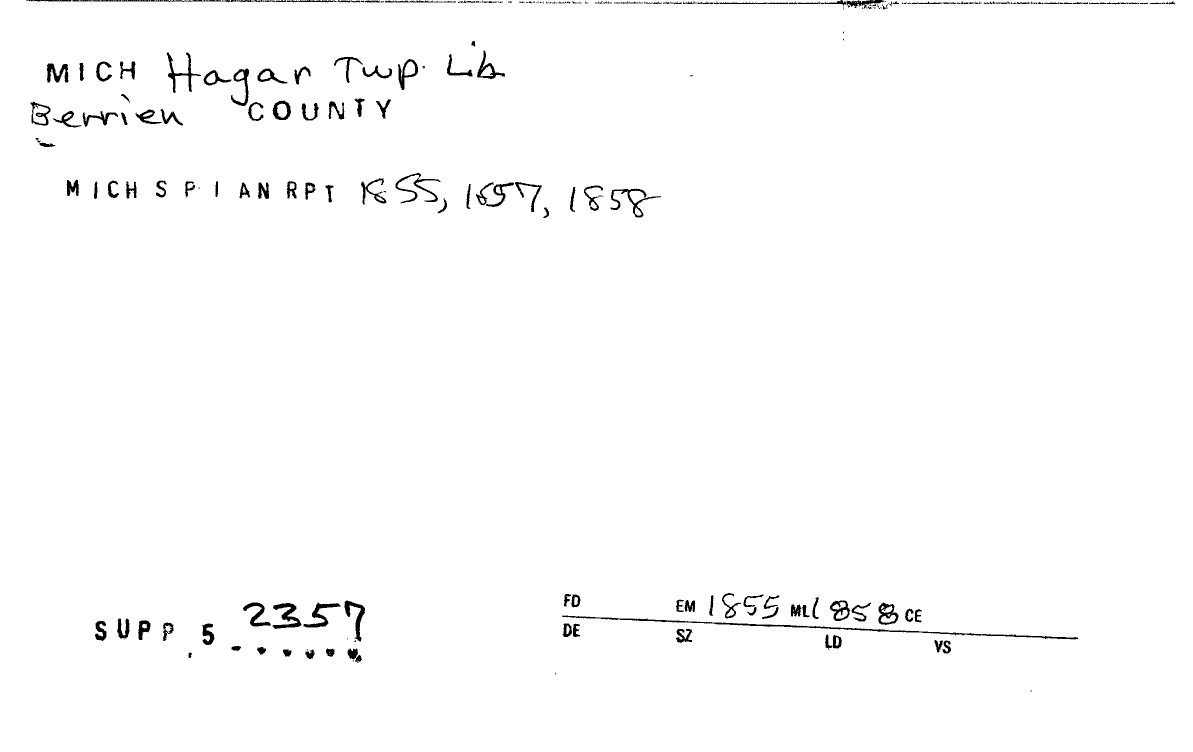 MICH Hagan Twp. Lib
Berrien COUNTY
MICH S P I AN RPT 1855, 1857, 1858
SUPP. 5 2357
FD EM 1855 ML 1858 CE
DE SZ LD VS